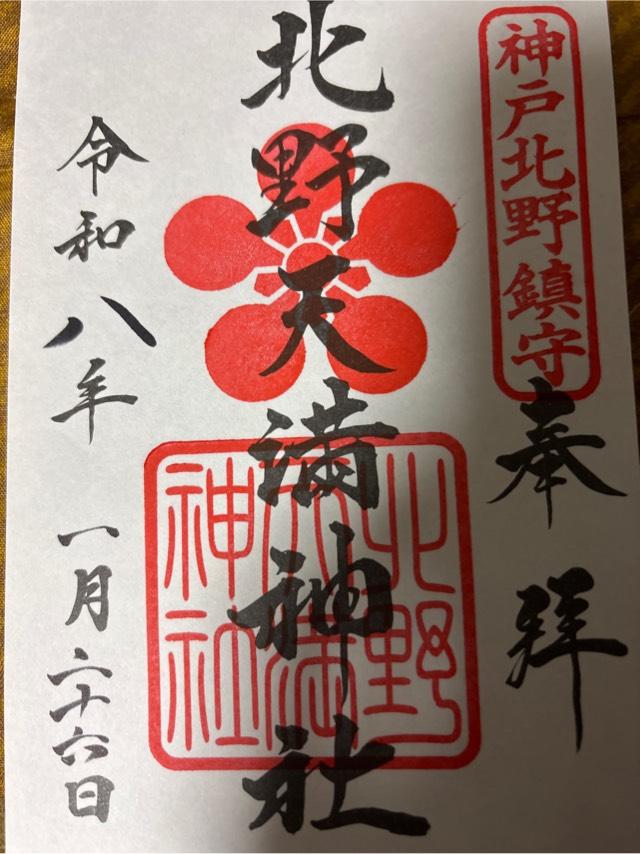 神戸北野鎮守
奉拝
北野天満神社
北野
天満
神社
令和八年 一月二十六日